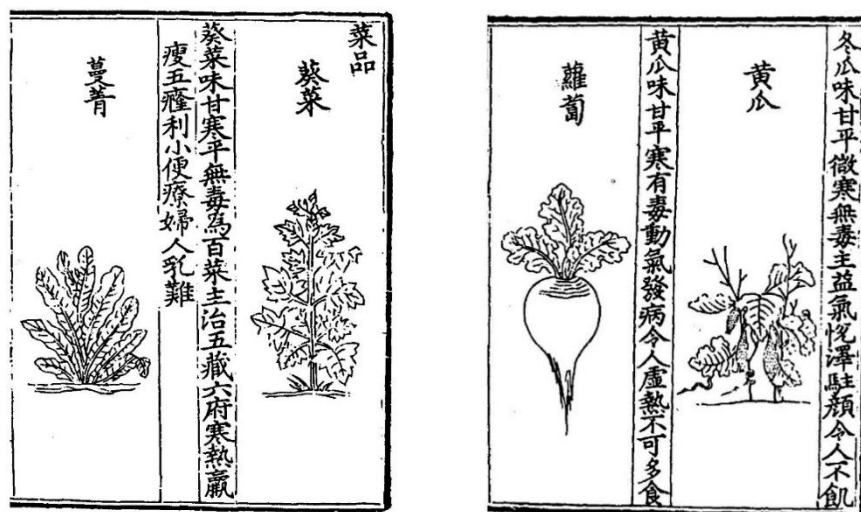 菜品
葵菜
葵菜味甘寒平無毒為百菜主治五藏六府寒熱羸
瘦五癃利小便療婦人乳難
蔓菁
冬瓜味甘平微寒無毒主益氣悅澤駐顏令人不飢
黄瓜
黄瓜味甘平寒有毒動氣發病令人虛熱不可多食
蘿蔔